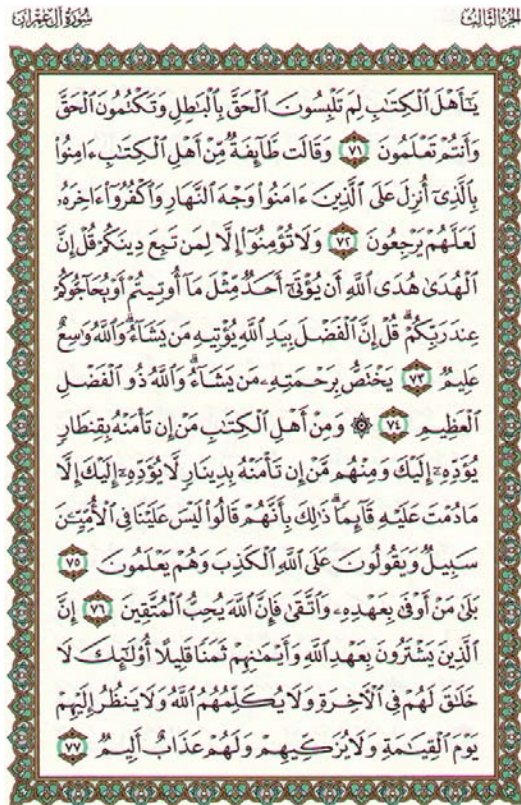 الجزء الثالث
سورة آل عمران
يَـٰٓأَهْلَ ٱلْكِتَـٰبِ لِمَ تَلْبِسُونَ ٱلْحَقَّ بِٱلْبَـٰطِلِ وَتَكْتُمُونَ ٱلْحَقَّ
وَأَنتُمْ تَعْلَمُونَ ٧١ وَقَالَت طَّآئِفَةٌ مِّنْ أَهْلِ ٱلْكِتَـٰبِ ءَامِنُوا۟
بِٱلَّذِىٓ أُنزِلَ عَلَى ٱلَّذِينَ ءَامَنُوا۟ وَجْهَ ٱلنَّهَارِ وَٱكْفُرُوٓا۟ ءَاخِرَهُۥ
لَعَلَّهُمْ يَرْجِعُونَ ٧٢ وَلَا تُؤْمِنُوٓا۟ إِلَّا لِمَن تَبِعَ دِينَكُمْ قُلْ إِنَّ
ٱلْهُدَىٰ هُدَى ٱللَّهِ أَن يُؤْتَىٰٓ أَحَدٌ مِّثْلَ مَآ أُوتِيتُمْ أَوْ يُحَآجُّوكُمْ
عِندَ رَبِّكُمْ ۗ قُلْ إِنَّ ٱلْفَضْلَ بِيَدِ ٱللَّهِ يُؤْتِيهِ مَن يَشَآءُ ۗ وَٱللَّهُ وَٰسِعٌ
عَلِيمٌ ٧٣ يَخْتَصُّ بِرَحْمَتِهِۦ مَن يَشَآءُ ۗ وَٱللَّهُ ذُو ٱلْفَضْلِ
ٱلْعَظِيمِ ٧٤ ۞ وَمِنْ أَهْلِ ٱلْكِتَـٰبِ مَنْ إِن تَأْمَنْهُ بِقِنطَارٍ
يُؤَدِّهِۦٓ إِلَيْكَ وَمِنْهُم مَّنْ إِن تَأْمَنْهُ بِدِينَارٍ لَّا يُؤَدِّهِۦٓ إِلَيْكَ إِلَّا
مَا دُمْتَ عَلَيْهِ قَآئِمًا ۗ ذَٰلِكَ بِأَنَّهُمْ قَالُوا۟ لَيْسَ عَلَيْنَا فِى ٱلْأُمِّيِّـۧنَ
سَبِيلٌ وَيَقُولُونَ عَلَى ٱللَّهِ ٱلْكَذِبَ وَهُمْ يَعْلَمُونَ ٧٥
بَلَىٰ مَنْ أَوْفَىٰ بِعَهْدِهِۦ وَٱتَّقَىٰ فَإِنَّ ٱللَّهَ يُحِبُّ ٱلْمُتَّقِينَ ٧٦ إِنَّ
ٱلَّذِينَ يَشْتَرُونَ بِعَهْدِ ٱللَّهِ وَأَيْمَـٰنِهِمْ ثَمَنًا قَلِيلًا أُو۟لَـٰٓئِكَ لَا
خَلَـٰقَ لَهُمْ فِى ٱلْـَٔاخِرَةِ وَلَا يُكَلِّمُهُمُ ٱللَّهُ وَلَا يَنظُرُ إِلَيْهِمْ
يَوْمَ ٱلْقِيَـٰمَةِ وَلَا يُزَكِّيهِمْ وَلَهُمْ عَذَابٌ أَلِيمٌ ٧٧